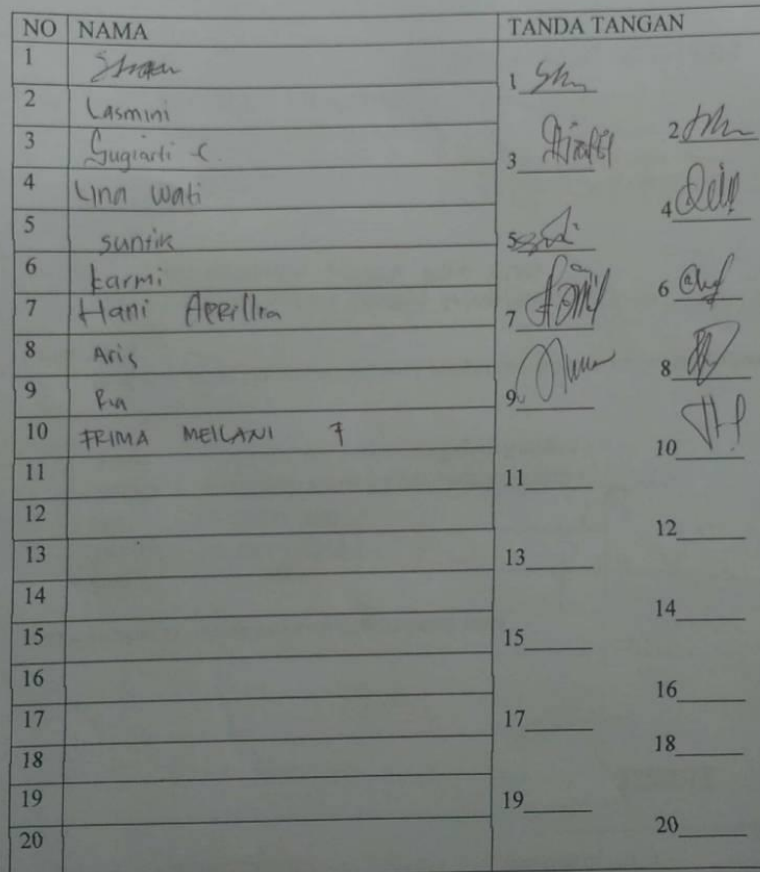 NO NAMA TANDA TANGAN
1 1
2 Lasmini 2
3 Sugiarti 3
4 Lina Wati 4
5 suntik 5
6 karmi 6
7 Hani Aprillia 7
8 Aris 8
9 Ria 9
10 FRIMA MEILANI 7 10
11 11
12 12
13 13
14 14
15 15
16 16
17 17
18 18
19 19
20 20